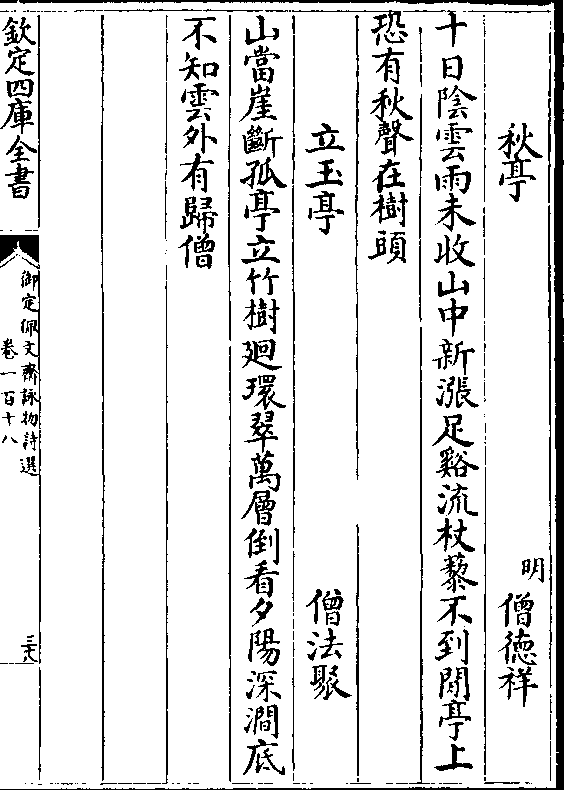 秋亭 明 僧德祥
十日陰雲雨未收山中新漲足谿流杖藜不到閒亭上
恐有秋聲在樹頭
立玉亭 僧法聚
山當崖斷孤亭立竹樹廻環翠萬層倒看夕陽深澗底
不知雲外有歸僧
欽定四庫全書
御定佩文齋詠物詩選
卷一百十八